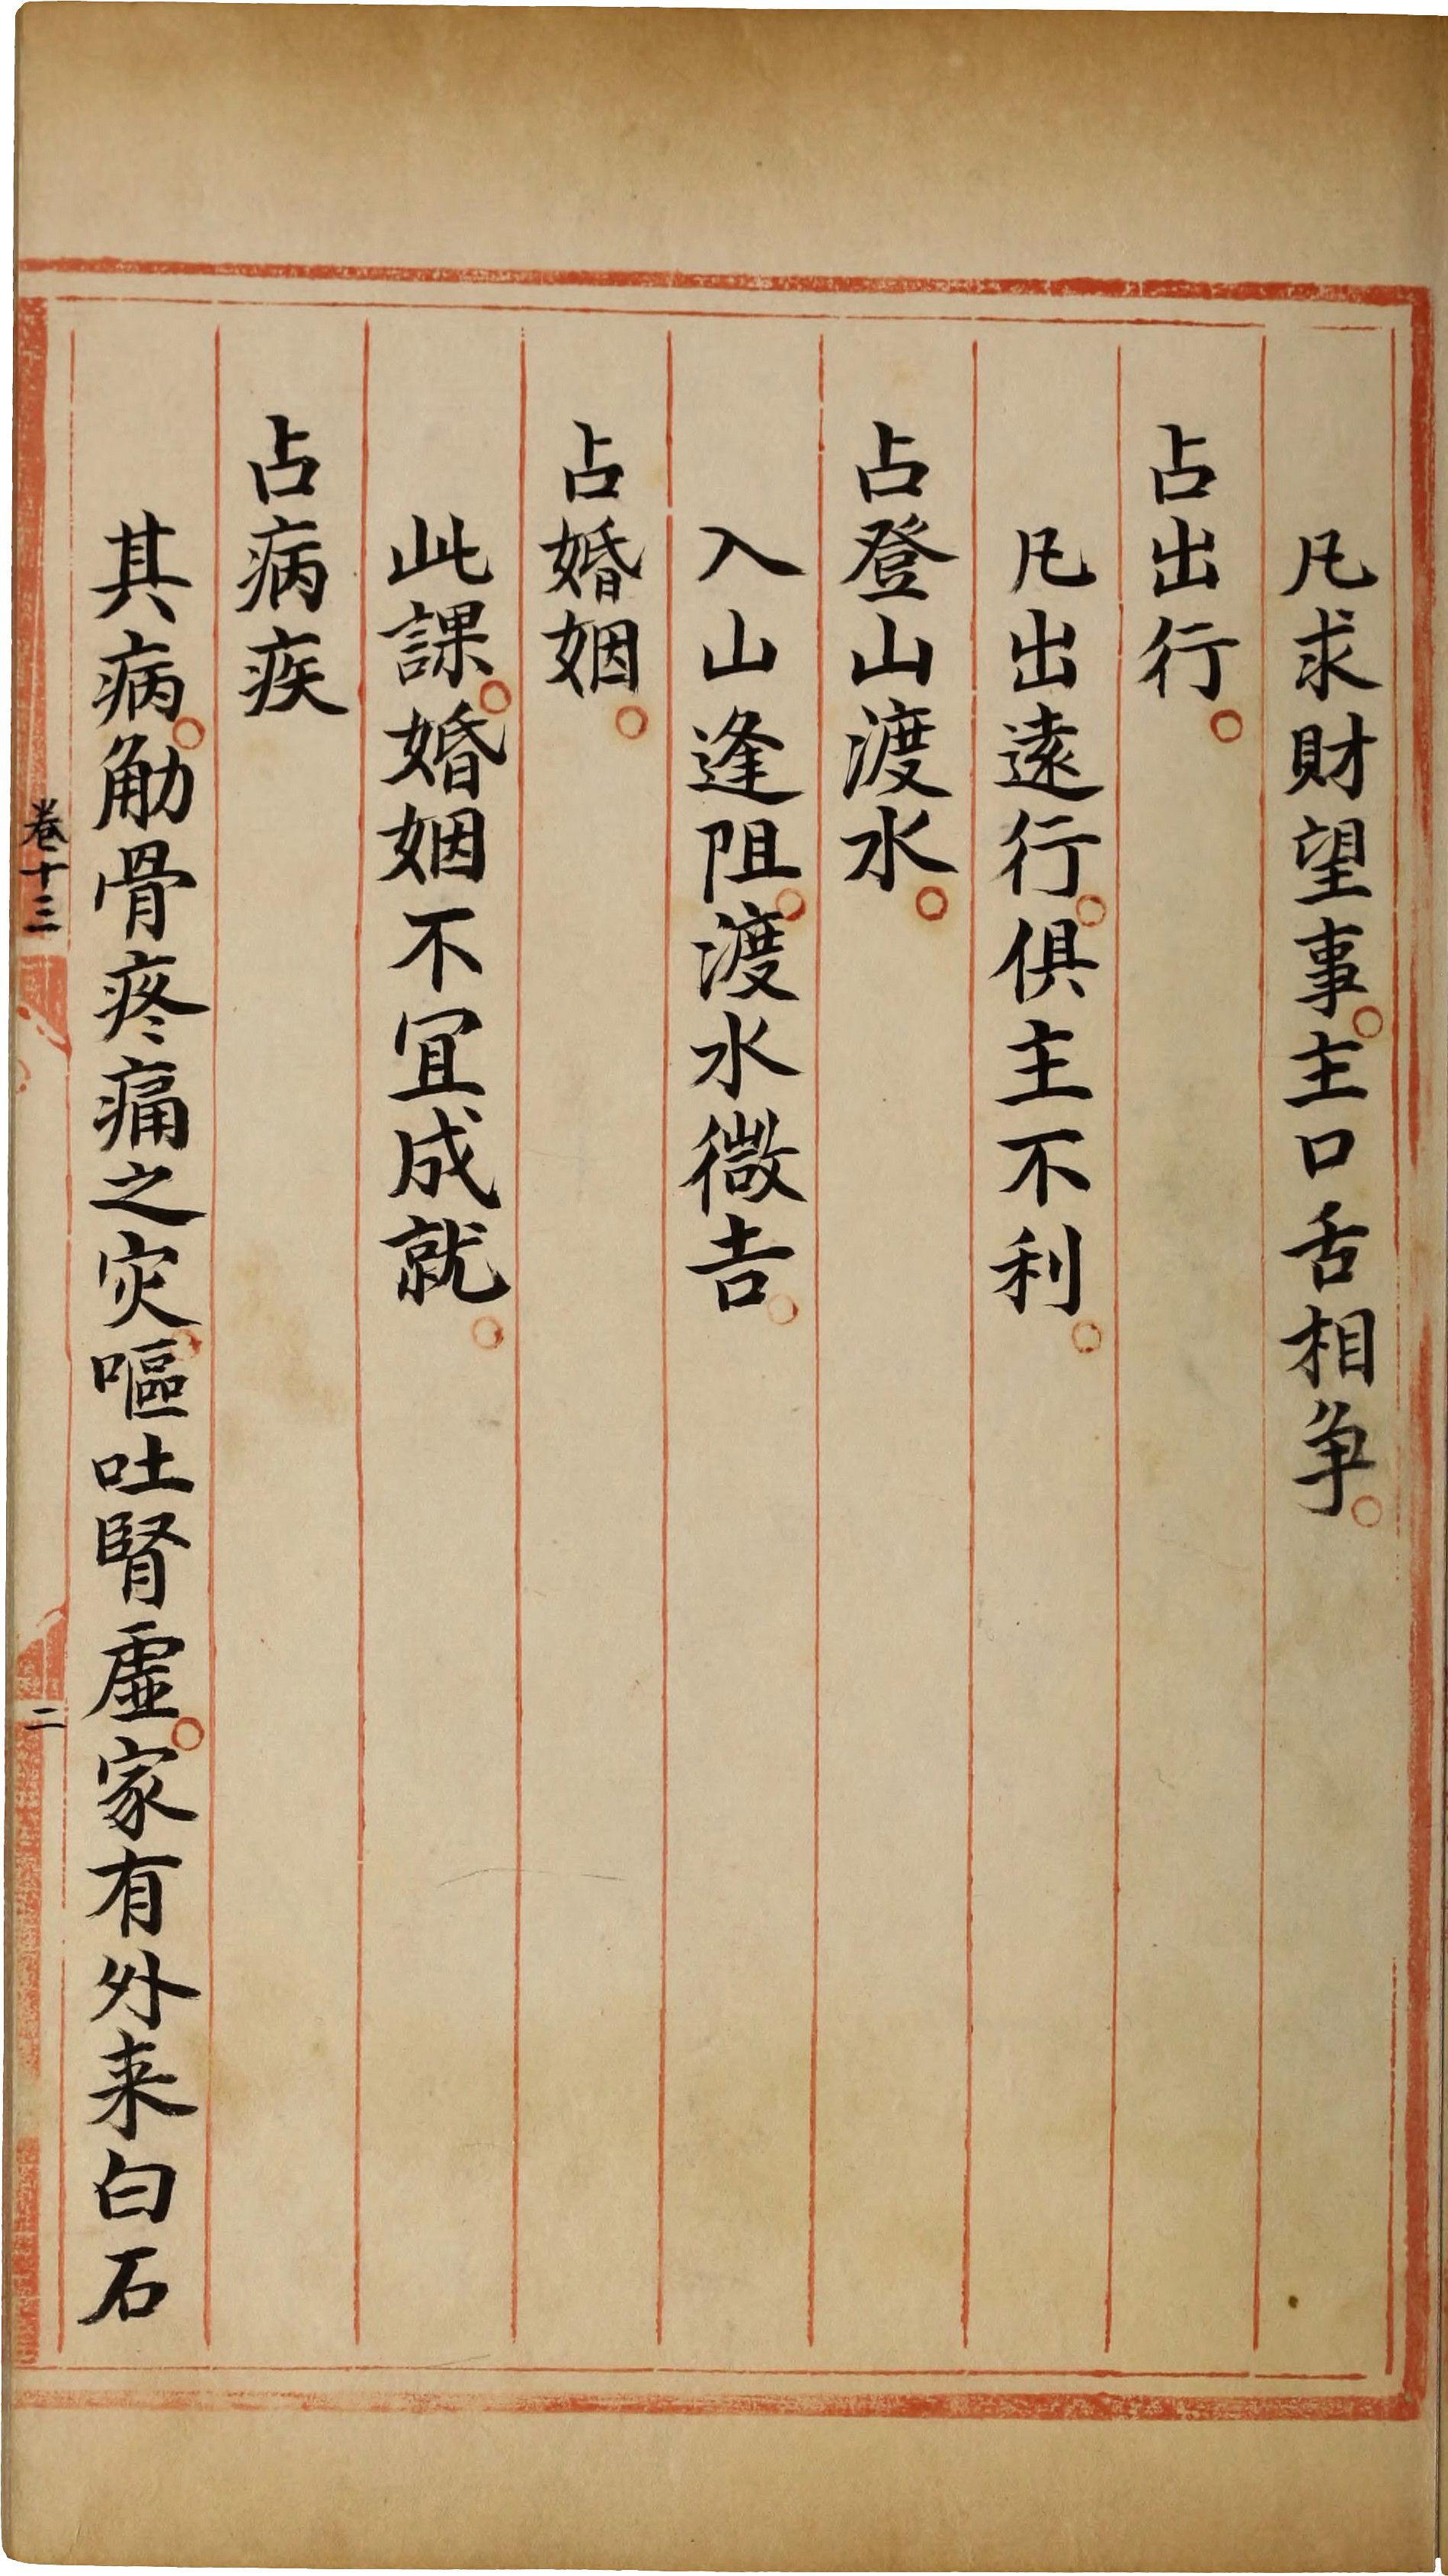 凡求財望事。主口舌相争。
占出行。
凡出遠行。俱主不利。
占登山渡水。
入山逢阻。渡水微吉。
占婚姻。
此課。婚姻不宜成就。
占病疾
其病。觔骨疼痛之灾。嘔吐腎虛。家有外来白石
卷十三
二